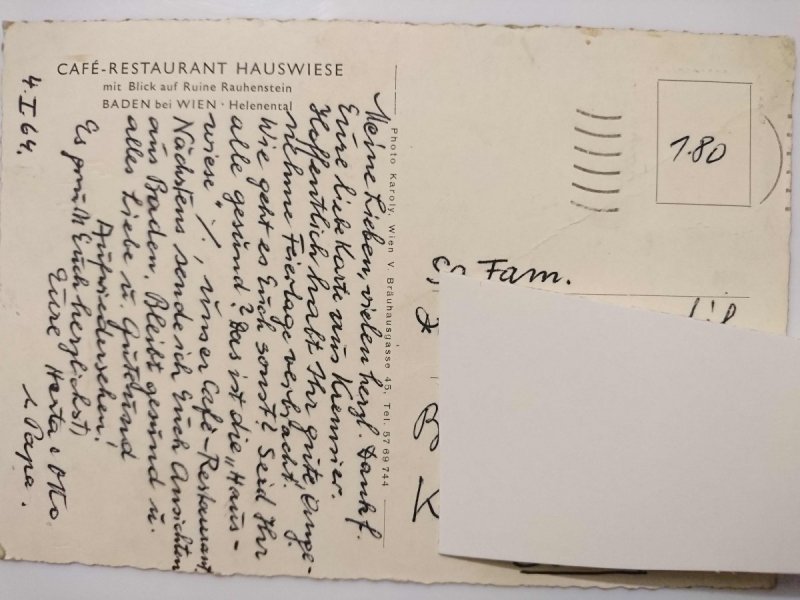 CAFÉ-RESTAURANT HAUSWIESE
mit Blick auf Ruine Rauhenstein
BADEN bei WIEN · Helenental
4. I 64.
Meine Lieben, vielen herzl. Dank f.
Eure liebe Karte aus Kremsier.
Hoffentlich habt Ihr gute, ange-
nehme Feiertage verbracht.
Wie geht es Euch sonst? Seid Ihr
alle gesund? Das ist die „Haus-
wiese" ·/·, unser Café-Restaurant.
Nächstens sende ich Euch Ansichten
aus Baden. Bleibt gesund u.
alles Liebe u. Gute und
Aufwiedersehen!
Es grüßt Euch herzlichst
Eure Herta & Otto
& Papa.
Photo Karoly, Wien V. Bräuhausgasse 45, Tel. 57 69 744
1.80
Fam.
B
K